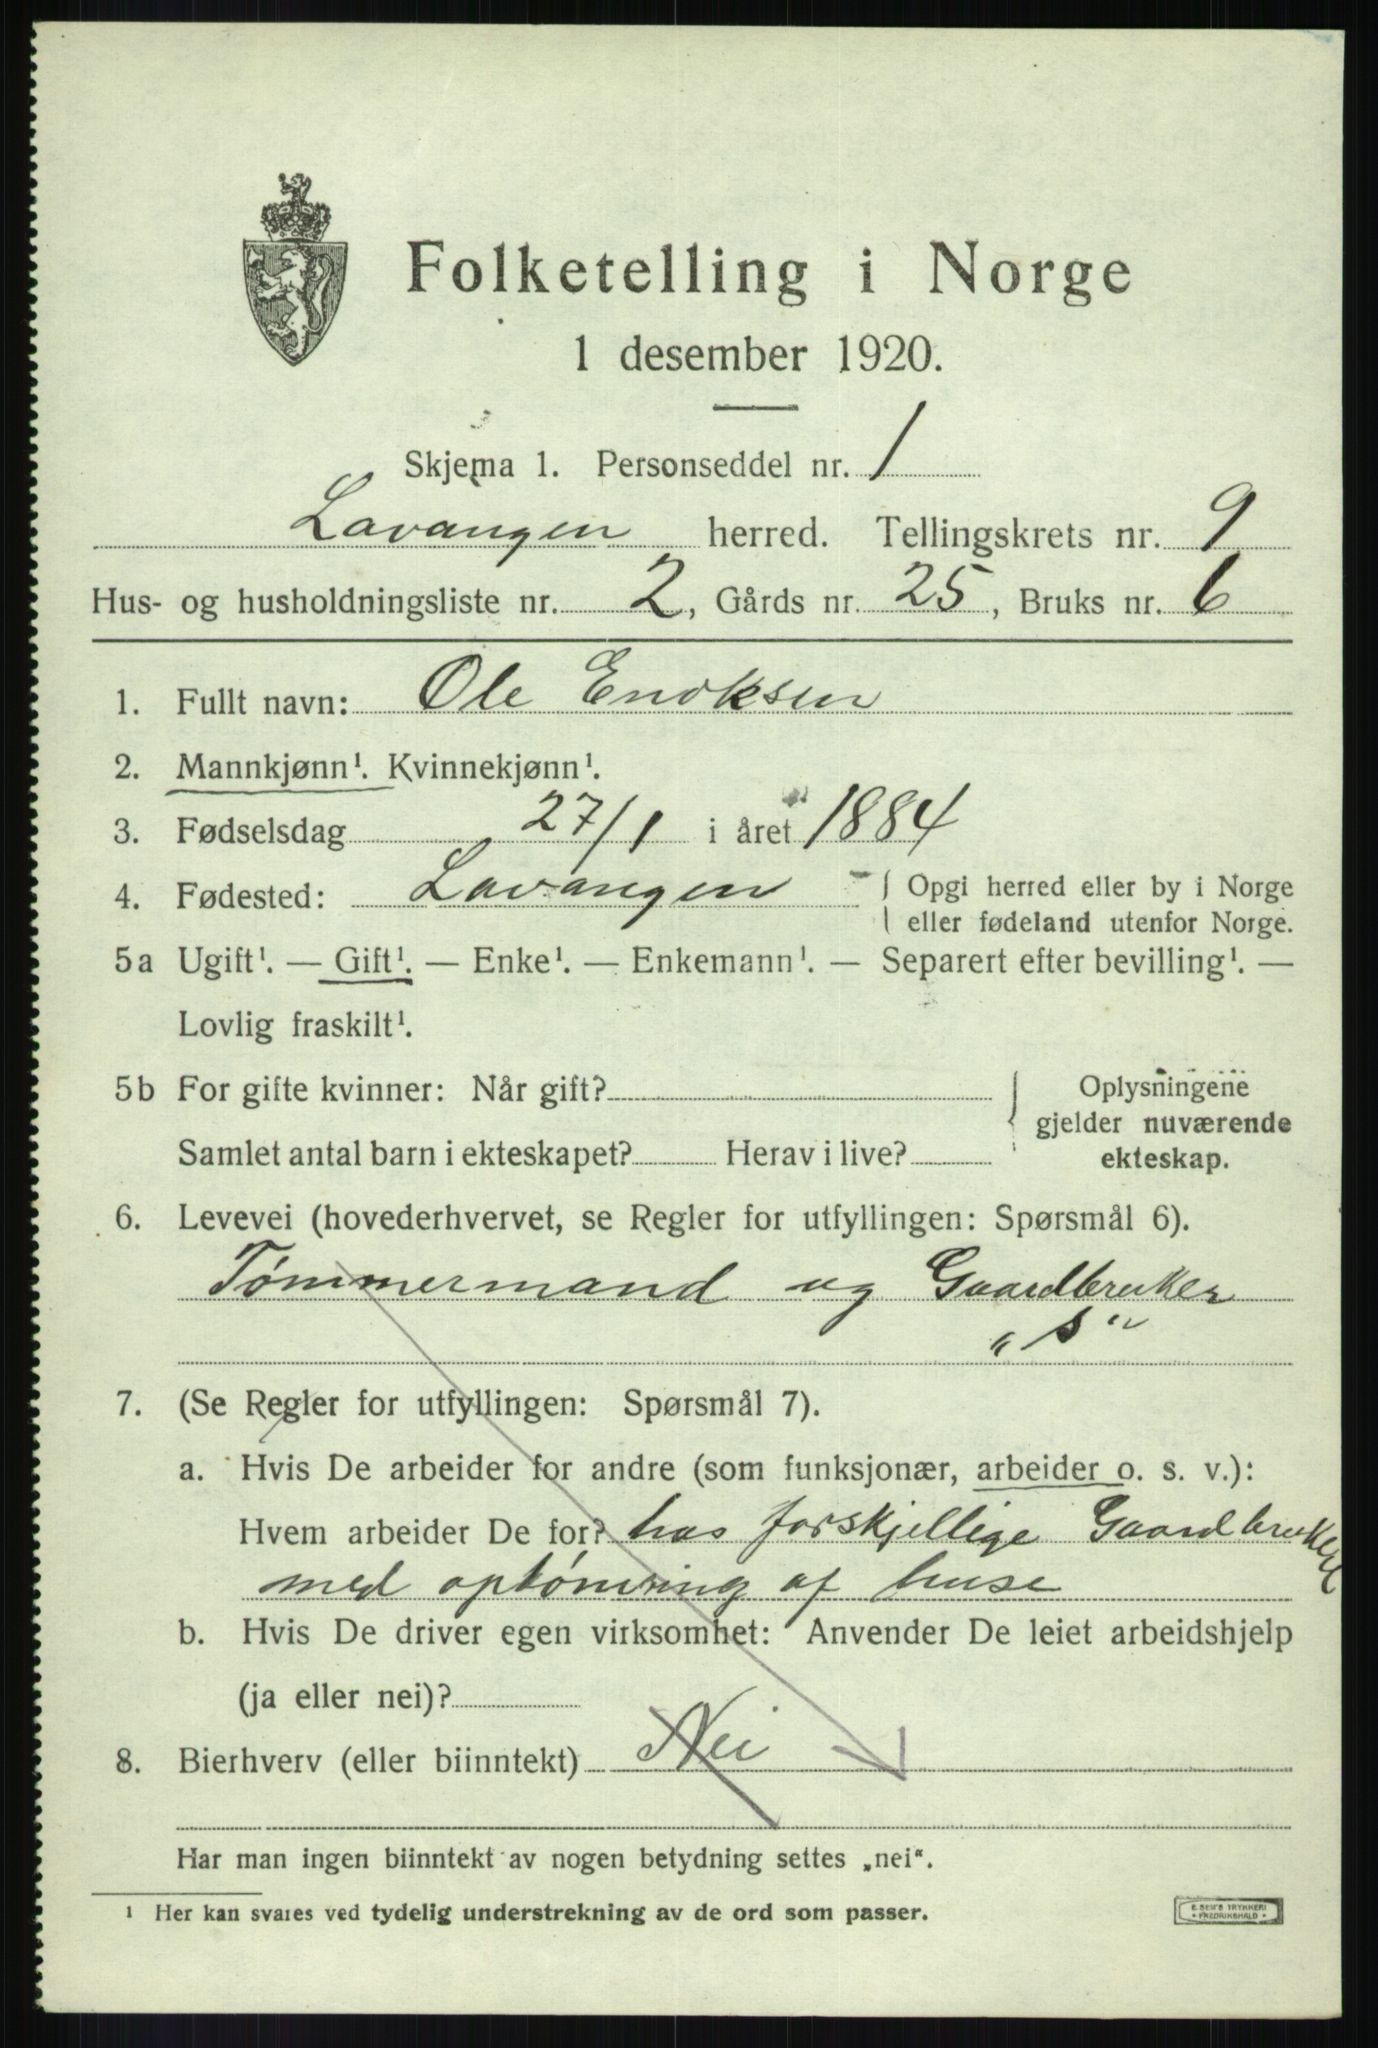 Folketelling i Norge
1 desember 1920.
Skjema 1. Personseddel nr. 1
Lavangen herred. Tellingskrets nr. 9
Hus- og husholdningsliste nr. 2, Gårds nr. 25, Bruks nr. 6
1. Fullt navn: Ole Enoksen
2. Mannkjønn¹. Kvinnekjønn¹.
3. Fødselsdag 27/1 i året 1884
4. Fødested: Lavangen { Opgi herred eller by i Norge
eller fødeland utenfor Norge.
5a Ugift¹. — Gift¹. — Enke¹. — Enkemann¹. — Separert efter bevilling¹. —
Lovlig fraskilt¹.
5b For gifte kvinner: Når gift? { Oplysningene
gjelder nuværende
Samlet antal barn i ekteskapet? Herav i live? ekteskap.
6. Levevei (hovederhvervet, se Regler for utfyllingen: Spørsmål 6).
Tømmermand og Gaardbruker
"s"
7. (Se Regler for utfyllingen: Spørsmål 7).
a. Hvis De arbeider for andre (som funksjonær, arbeider o. s. v.):
Hvem arbeider De for? hos forskjellige Gaardbrukere
med optømring af huse
b. Hvis De driver egen virksomhet: Anvender De leiet arbeidshjelp
(ja eller nei)?
8. Bierhverv (eller biinntekt) Nei
Har man ingen biinntekt av nogen betydning settes „nei“.
¹ Her kan svares ved tydelig understrekning av de ord som passer.
E. SEM'S TRYKKERI
• FREDRIKSHALD •